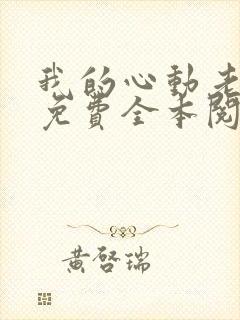 我的心動老
免費全本閱
黃啓瑞